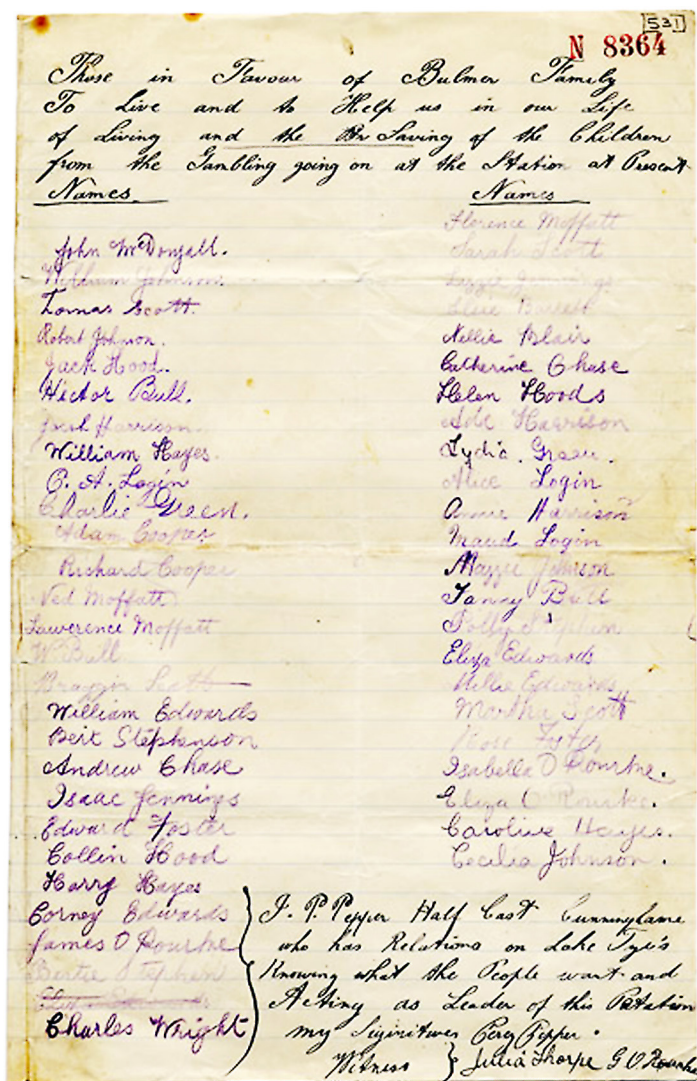 531
N 8364
Those in Favour of Bulmer Family
To Live and to Help us in our Life
of Living and the Saving of the Children
from the Gambling going on at the Station at Present
Names
John McDougall.
William Johnson.
Tomas Scott.
Robert Johnson.
Jack Hood.
Hector Bull.
Harrison.
William Hayes.
C. A. Login
Charlie Green.
Adam Cooper
Richard Cooper
Ned Moffatt
Lawerence Moffatt
W Bull
Scott
William Edwards
Bert Stephenson
Andrew Chase
Isaac Jennings
Edward Foster
Collin Hood
Harry Hayes
Corney Edwards
James O Rourke
Bertie Stephen
Charles Wright
Names
Florence Moffatt
Sarah Scott
Lizzie Jennings
Elsie Barrett
Nellie Blair
Catherine Chase
Helen Hoods
Ada Harrison
Lydia. Green.
Alice Login
Annie Harrison
Maud Login
Johnson
Fanny Bull
Polly
Eliza Edwards
Millie Edwards
Martha Scott
Isabella O Rourke.
Eliza O Rourke.
Caroline Hayes.
Cecilia Johnson.
I. P. Pepper Half Cast Cunninghame
who has Relations on Lake Tyes
Knowing what the People want and
Acting as Leader of this Petation
my Siginitures Percy Pepper.
Witness } Julia Thorpe G O Rourke